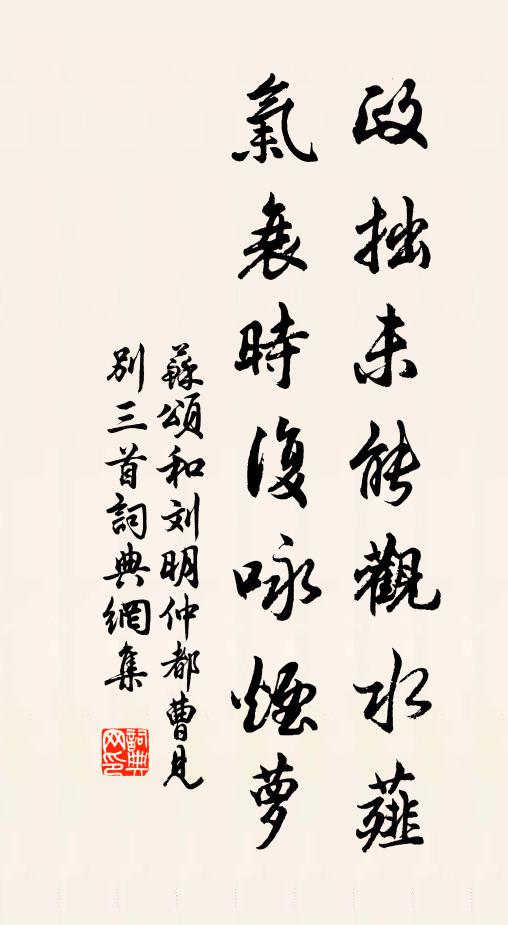 政拙未能觀水薤
氣衰時復咏煙萝
蘇頌和刘明仲都曹見
别三首詞典網集
詞典网印